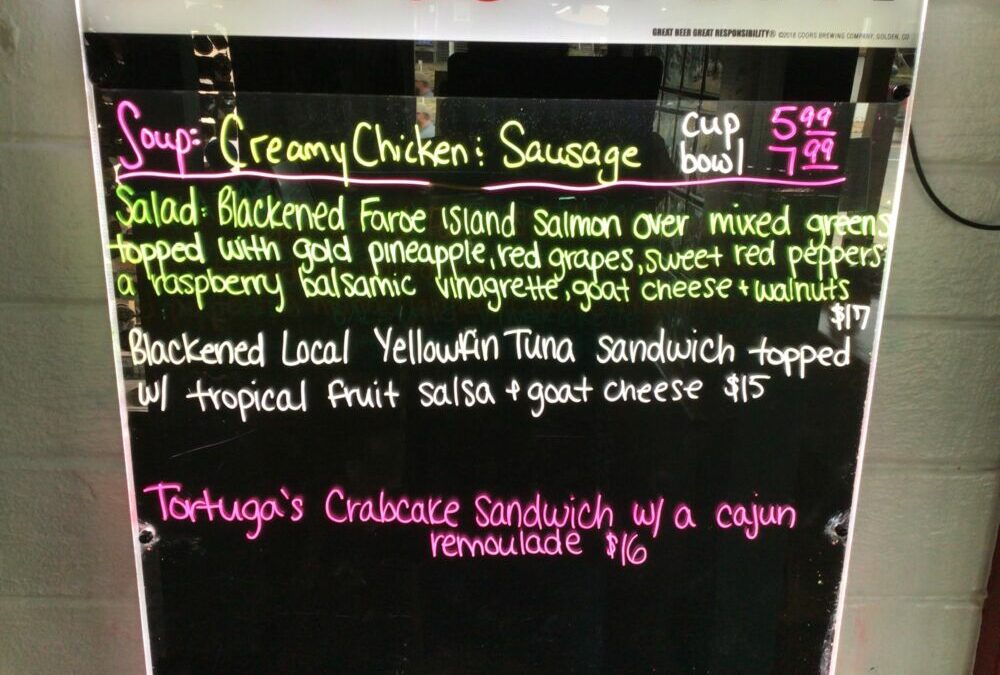 GREAT BEER GREAT RESPONSIBILITY® ©2018 COORS BREWING COMPANY, GOLDEN, CO
Soup: Creamy Chicken : Sausage cup 5.99
bowl 7.99
Salad: Blackened Faroe Island Salmon over mixed greens
topped with gold pineapple, red grapes, sweet red peppers
a raspberry balsamic vinagrette, goat cheese + walnuts
$17
Blackened Local Yellowfin Tuna sandwich topped
w/ tropical fruit salsa + goat cheese $15
Tortuga's Crabcake Sandwich w/ a cajun
remoulade $16